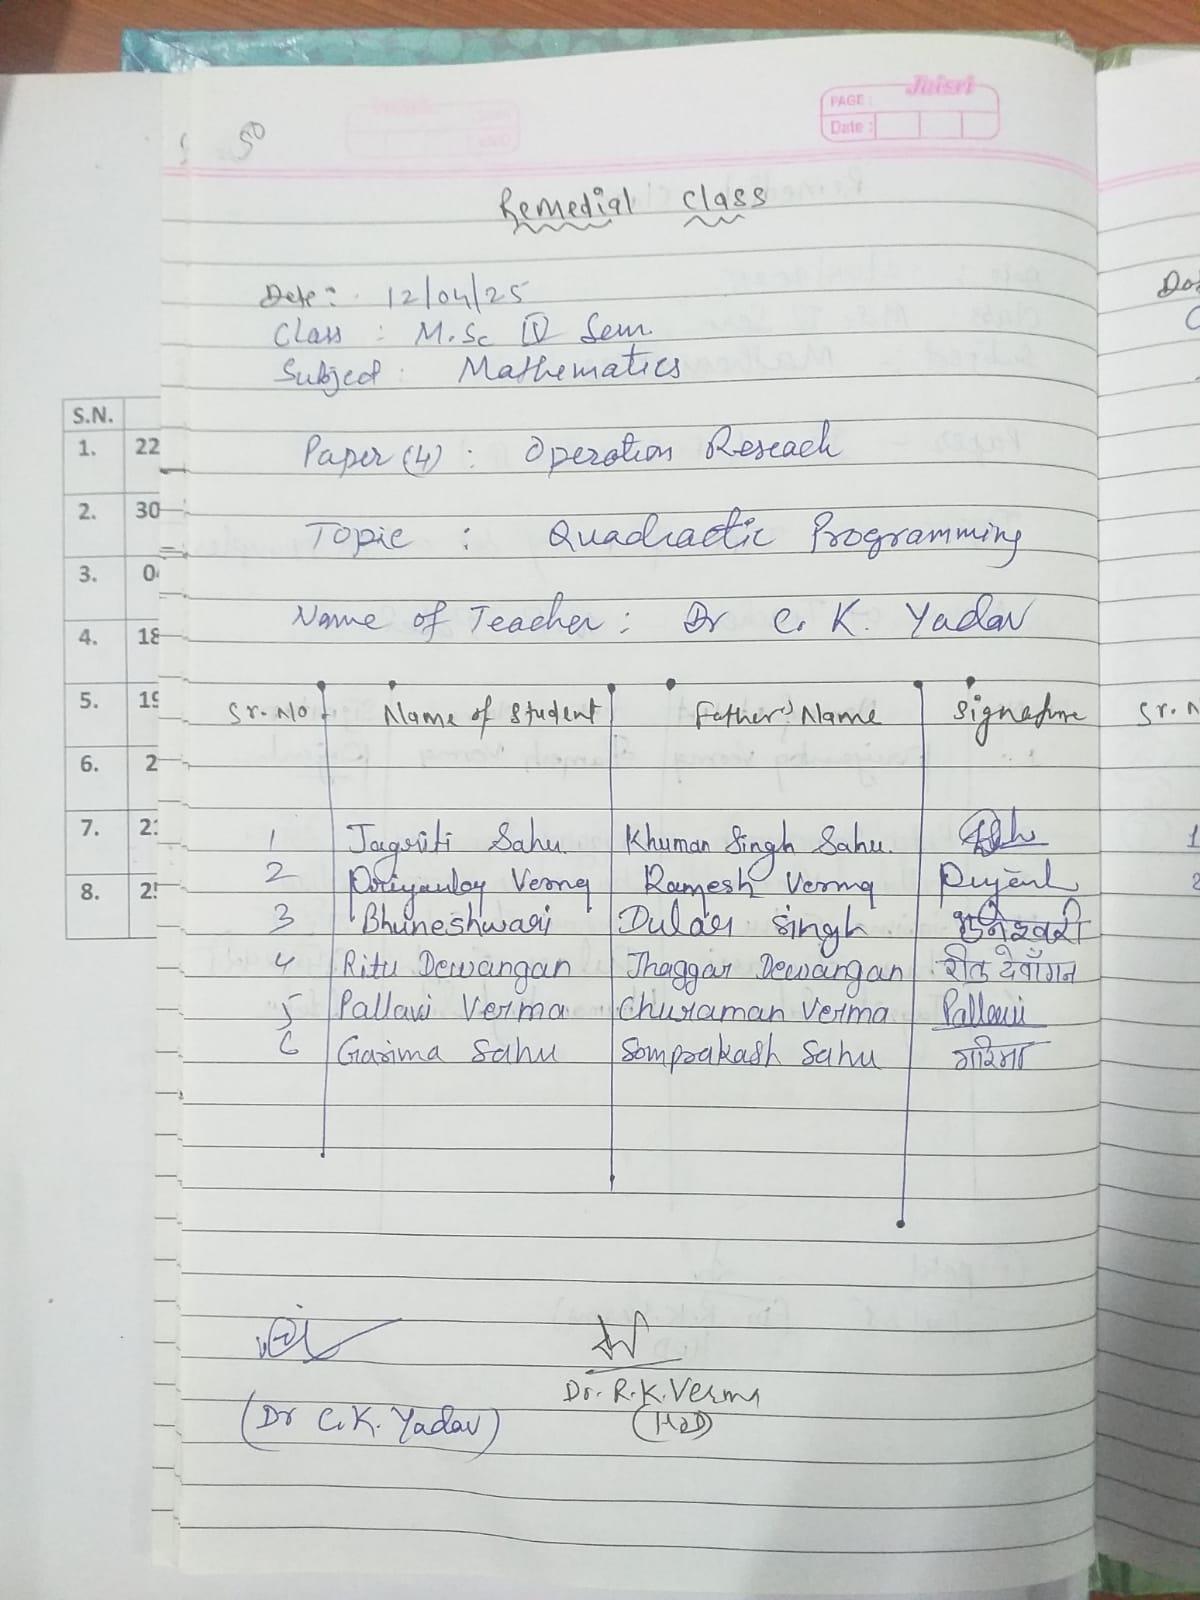 Jaisri
PAGE :
Date :
50
Remedial class
Date : 12/04/25
Class : M.Sc IV Sem.
Subject : Mathematics
Paper (4) : Operation Reseach
Topic : Quadractic Programming
Name of Teacher : Dr C. K. Yadav
Sr. No Name of Student Father's Name Signature
1 Jagriti Sahu Khuman Singh Sahu
2 Verma Ramesh Verma
3 Bhuneshwari Dular Singh भुनेश्वरी
4 Ritu Dewangan Jhaggar Dewangan रीतु देवाँगन
5 Pallavi Verma Churaman Verma Pallavi
6 Garima Sahu Somprakash Sahu गरिमा
Dr. R.K. Verma
(Dr C.K. Yadav) (HOD)
S.N.
1. 22
2. 30
3. 0
4. 18
5. 19
6. 2
7. 2
8. 2
Sr. N
1
2